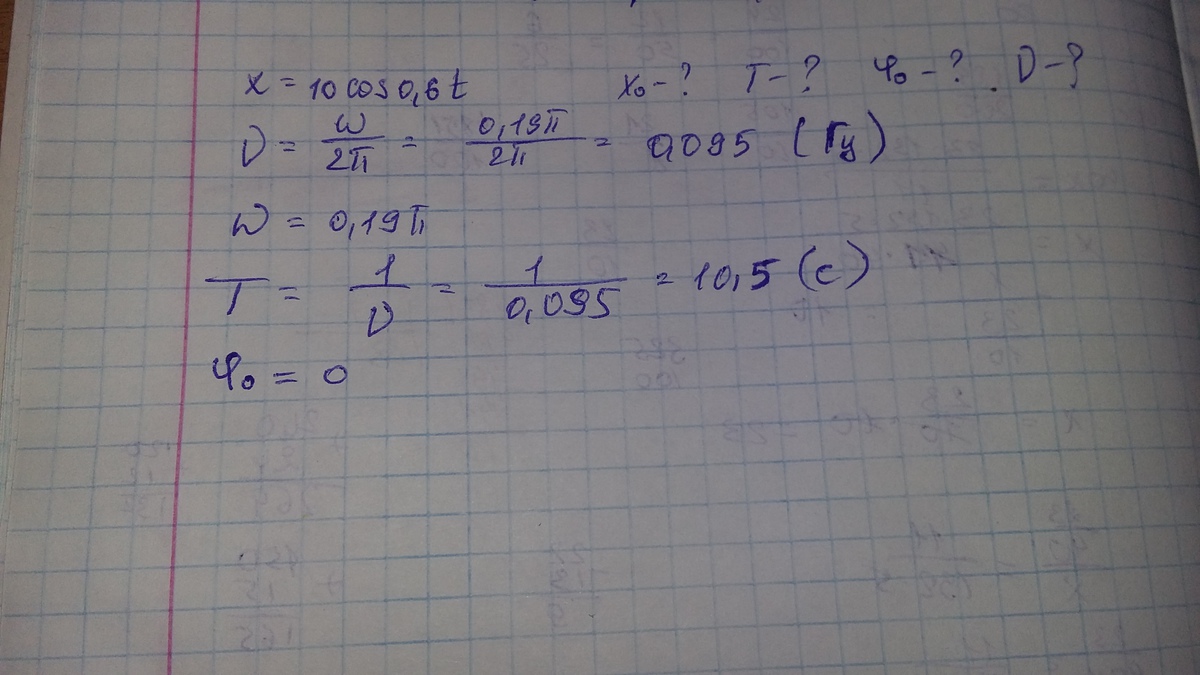 x = 10 cos 0,6t x₀ - ? T - ? φ₀ - ? ν - ?
ν = ω/2π = 0,19π/2π = 0,095 (Гц)
ω = 0,19π
T = 1/ν = 1/0,095 = 10,5 (с)
φ₀ = 0